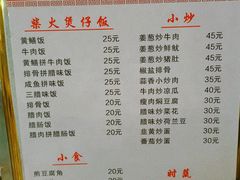 柴火煲仔饭
黄鳝饭 25元
牛肉饭 25元
黄鳝拼牛肉饭 25元
排骨拼腊味饭 25元
咸鱼拼腊味饭 25元
三腊味饭 25元
排骨饭 20元
腊肉饭 20元
腊肠饭 20元
腊肉拼腊肠饭 20元
小食
煎豆腐角 20元
20元
小炒
姜葱炒牛肉 45元
姜葱炒鲜鱿 45元
姜葱炒猪肚 45元
椒盐排骨 45元
蒜香小炒肉 35元
牛肉炒凉瓜 35元
瘦肉焖豆腐 30元
腊味炒菜花 30元
腊味炒荷兰豆 30元
韭黄炒蛋 30元
番茄炒蛋 30元
时蔬